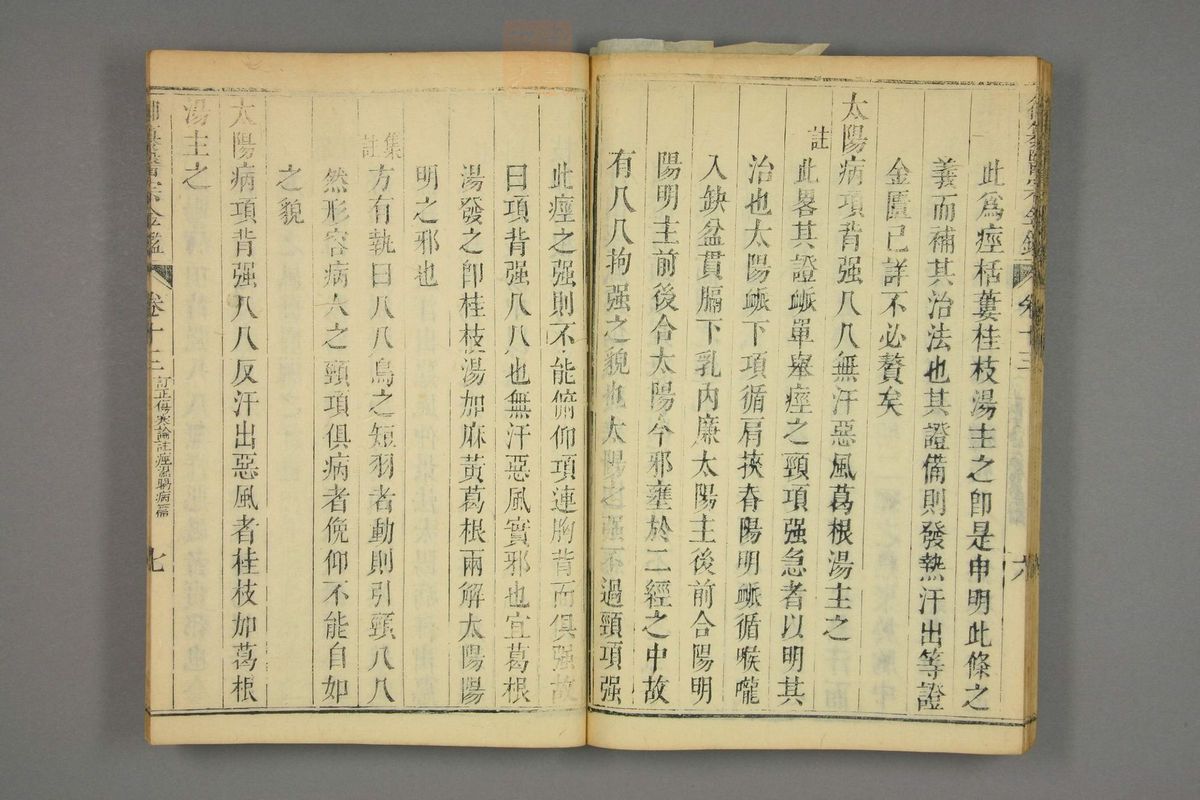 此爲痙栝蔞桂枝湯主之卽是申明此條之
義而補其治法也其證備則發熱汗出等證
金匱已詳不必贅矣
太陽病項背强八八無汗惡風葛根湯主之
註
此畧其證脈單舉痙之頸項强急者以明其
治也太陽脈下項循肩挾脊陽明脈循喉嚨
入缺盆貫膈下乳內廉太陽主後前合陽明
陽明主前後合太陽今邪壅於二經之中故
有八八拘强之貌也太陽之强不過頸項强
此痙之强則不能俯仰項連胸背而俱强故
曰項背强八八也無汗惡風實邪也宜葛根
湯發之卽桂枝湯加麻黃葛根兩解太陽陽
明之邪也
集註
方有執曰八八鳥之短羽者動則引頸八八
然形容病人之頸項俱病者俛仰不能自如
之貌
太陽病項背强八八反汗出惡風者桂枝加葛根
湯主之
御纂醫宗金鑑
卷十三
訂正傷寒論註痙濕暍病篇
七
卷十三
六